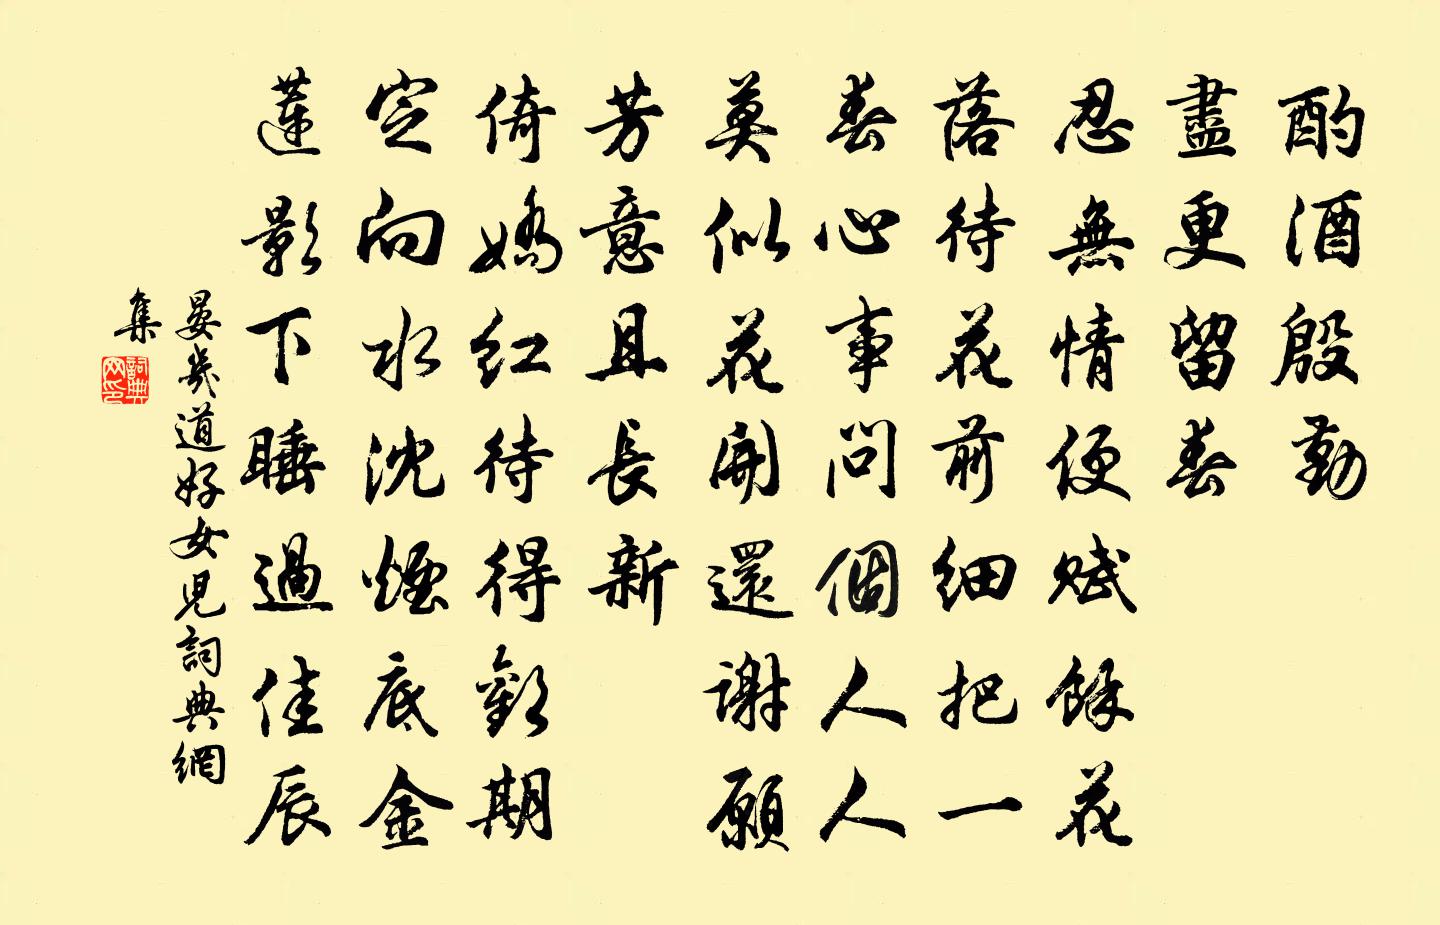 酌酒殷勤
盡更留春
忍無情便賦餘花
落待花前細把一
春心事問個人人
莫似花開還謝願
芳意且長新
倚嬌紅待得歡期
定向水沈煙底金
蓮影下睡過佳辰
晏幾道好女兒詞典網
集
詞典網印